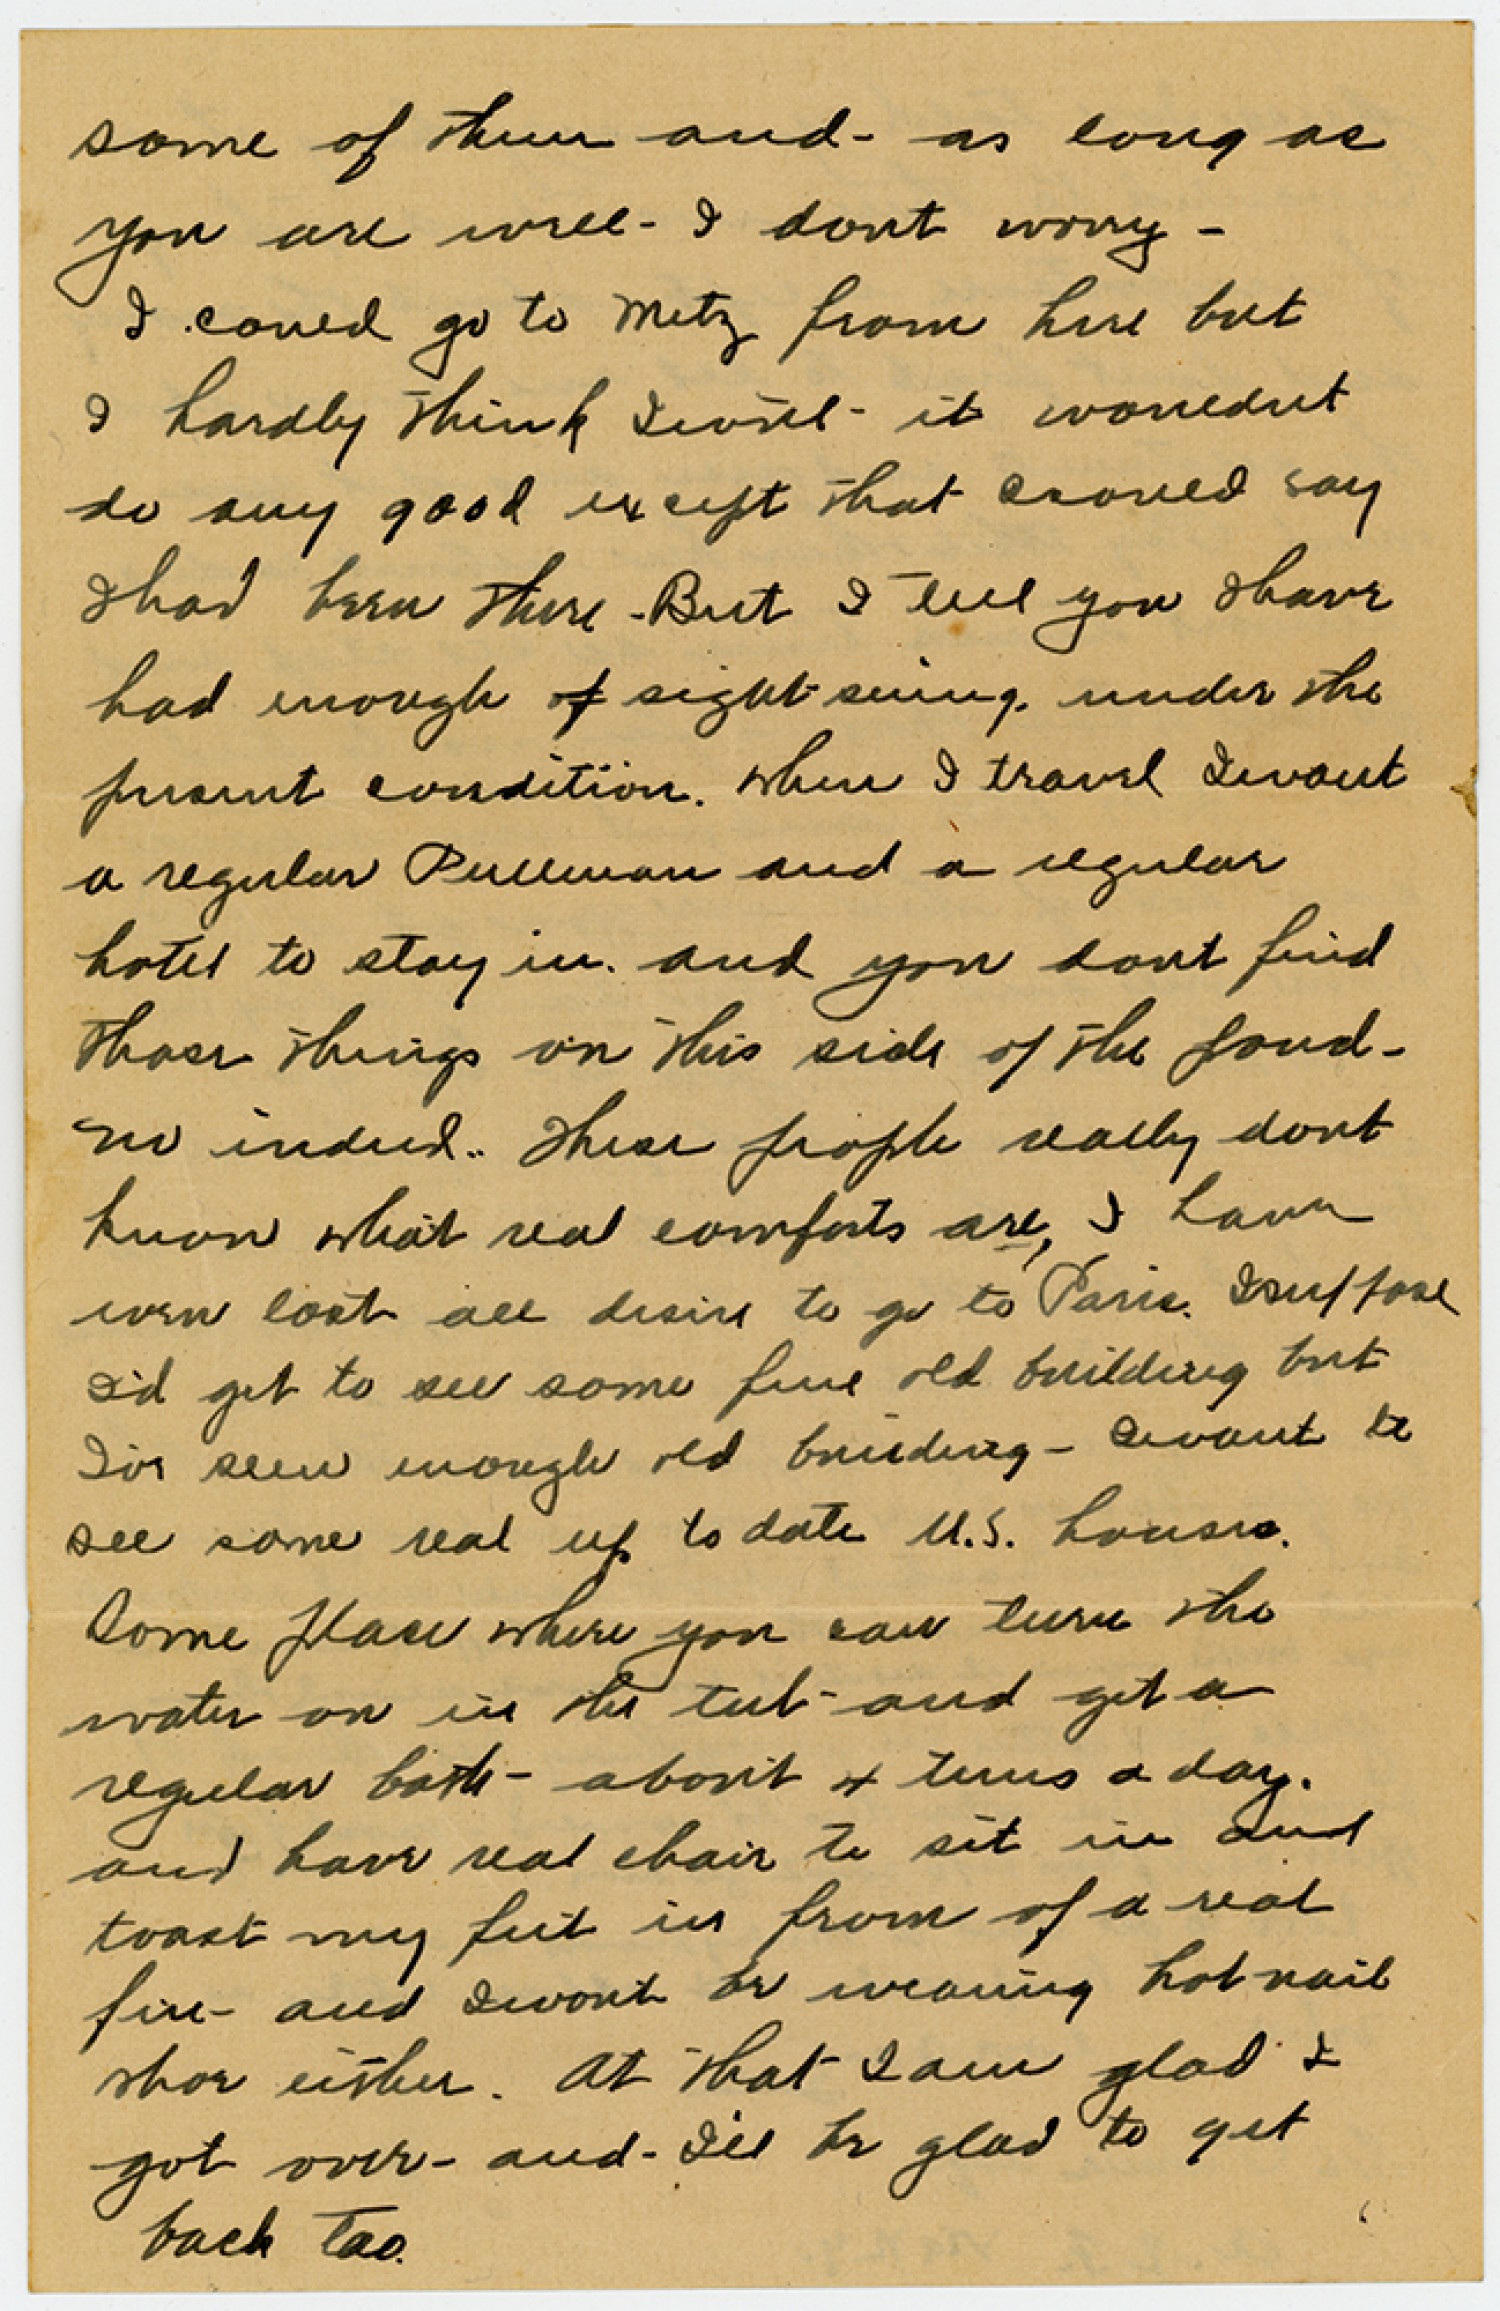 some of them and - as long as
you are well - I dont worry -
I could go to Metz from here but
I hardly think I will - it wouldnt
do any good except that I could say
I had been there - But I tell you I have
had enough of sight seeing. under the
present condition. When I travel I want
a regular Pullman and a regular
hotel to stay in. and you dont find
those things on this side of the pond -
no indeed.. These people really dont
know what real comforts are, I have
even lost all desire to go to Paris. I suppose
I'd get to see some fine old building but
I've seen enough old building - I want to
see some real up to date U.S. houses.
Some place where you can turn the
water on in the tub - and get a
regular bath - about 4 times a day.
and have real chair to sit in and
toast my feet in from of a real
fire - and I wont be wearing hob nail
shoe either. At that I am glad I
got over - and - I'll be glad to get
back too.